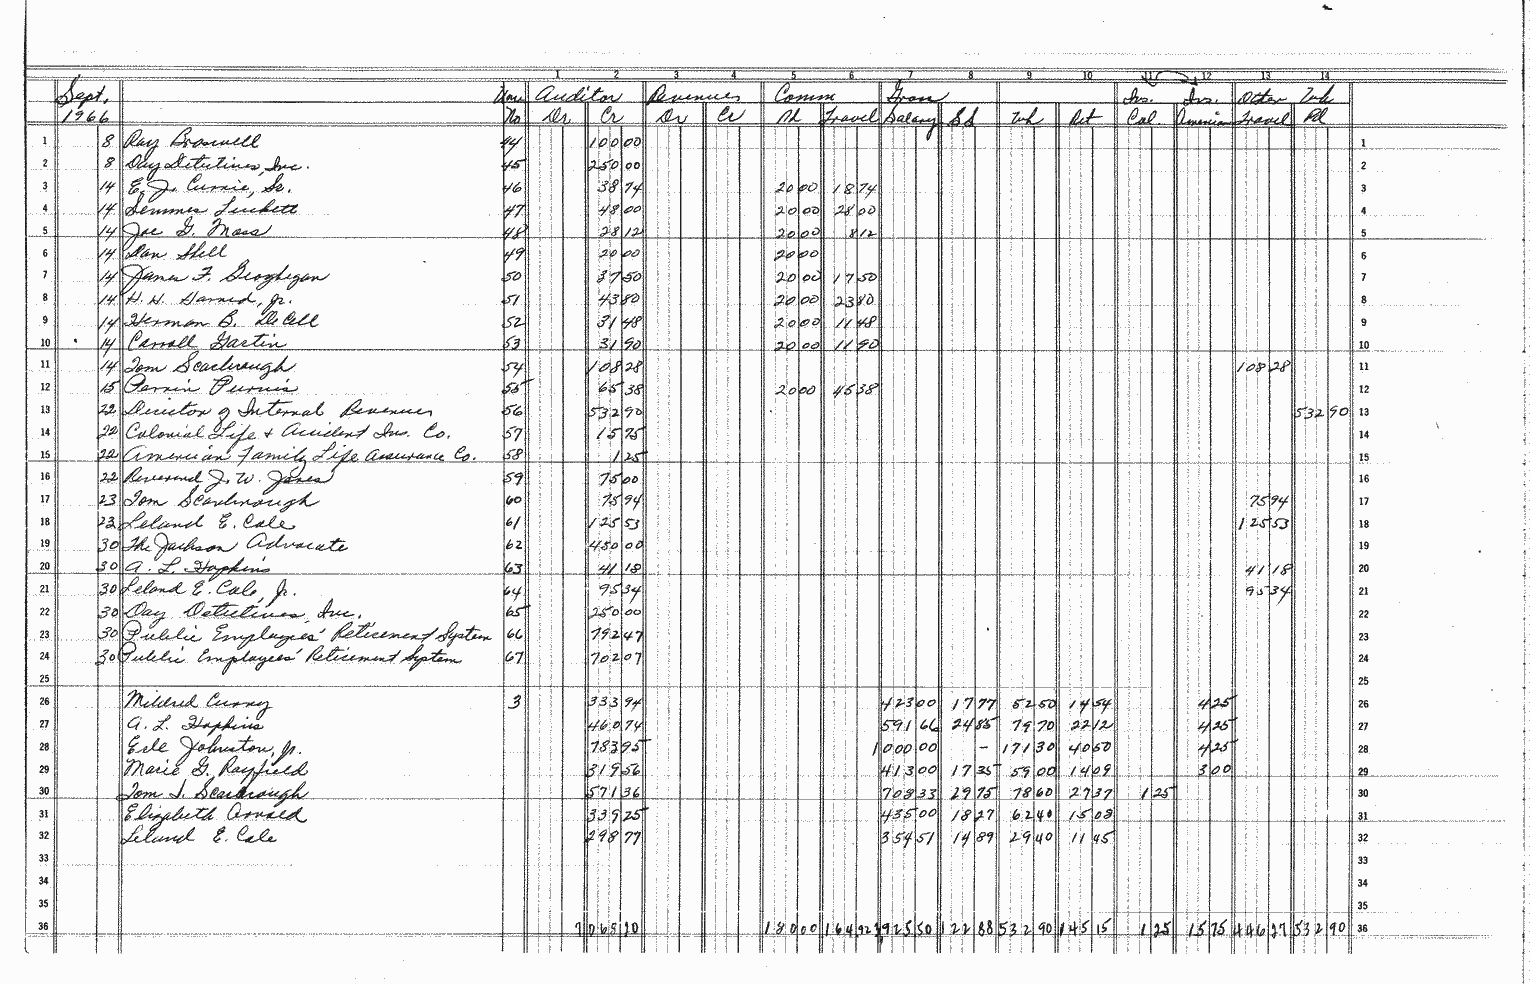 1 2 3 4 5 6 7 8 9 10 11 12 13 14
Sept. Auditor Revenues Comm Gross Ins. Ins. Other Wh
1966 No Dr Cr Dr Cr Pd Travel Salary SS Wh Ret Col American Travel Pd
1 8 Ray Braswell 44 100 00 1
2 8 Day Detectives, Inc. 45 250 00 2
3 14 E. J. Currie, Sr. 46 38 74 20 00 18 74 3
4 14 Semmes Luckett 47 48 00 20 00 28 00 4
5 14 Joe G. Moss 48 28 12 20 00 8 12 5
6 14 Dan Shell 49 20 00 20 00 6
7 14 James F. Geoghegan 50 37 50 20 00 17 50 7
8 14 H. H. Harned, Jr. 51 43 80 20 00 23 80 8
9 14 Herman B. DeCell 52 31 48 20 00 11 48 9
10 14 Carroll Gartin 53 31 90 20 00 11 90 10
11 14 Tom Scarbrough 54 108 28 108 28 11
12 15 Parvin Purvis 55 65 38 20 00 45 38 12
13 22 Director of Internal Revenues 56 532 90 532 90 13
14 22 Colonial Life & Accident Ins. Co. 57 15 75 14
15 22 American Family Life Assurance Co. 58 1 25 15
16 22 Reverend J. W. Jones 59 75 00 16
17 23 Tom Scarbrough 60 75 94 75 94 17
18 23 Leland E. Cole 61 125 53 125 53 18
19 30 The Jackson Advocate 62 450 00 19
20 30 A. L. Hopkins 63 41 18 41 18 20
21 30 Leland E. Cole, Jr. 64 95 34 95 34 21
22 30 Day Detectives, Inc. 65 250 00 22
23 30 Public Employees' Retirement System 66 792 47 23
24 30 Public Employees' Retirement System 67 702 07 24
25 25
26 Mildred Curry 3 333 94 423 00 17 77 52 50 14 54 4 25 26
27 A. L. Hopkins 460 74 591 66 24 85 79 70 22 12 4 25 27
28 Erle Johnston, Jr. 783 95 1 000 00 - 171 30 40 50 4 25 28
29 Marie G. Rayfield 319 56 413 00 17 35 59 00 14 09 3 00 29
30 Tom J. Scarbrough 571 36 708 33 29 75 78 60 27 37 1 25 30
31 Elizabeth Arnold 339 25 435 00 18 27 62 40 15 08 31
32 Leland E. Cole 298 77 354 51 14 89 29 40 11 45 32
33 33
34 34
35 35
36 180 00 164 92 3 925 50 122 88 532 90 145 15 1 25 15 75 446 27 532 90 36